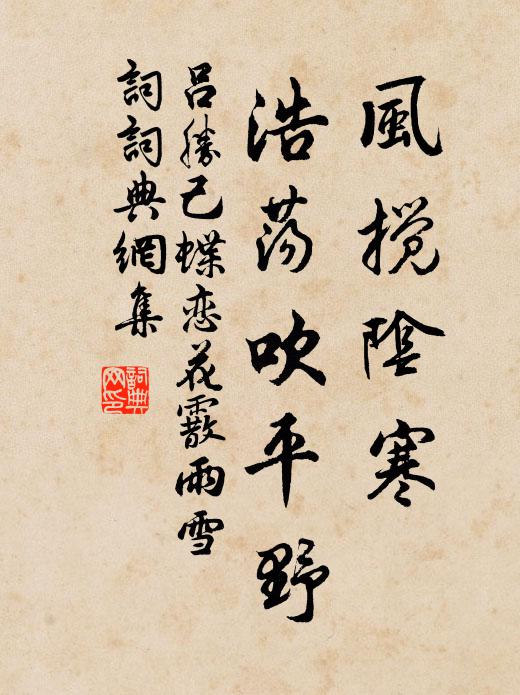 風搅陰寒
浩荡吹平野
呂勝己蝶恋花霰雨雪
詞詞典網集
詞典网印